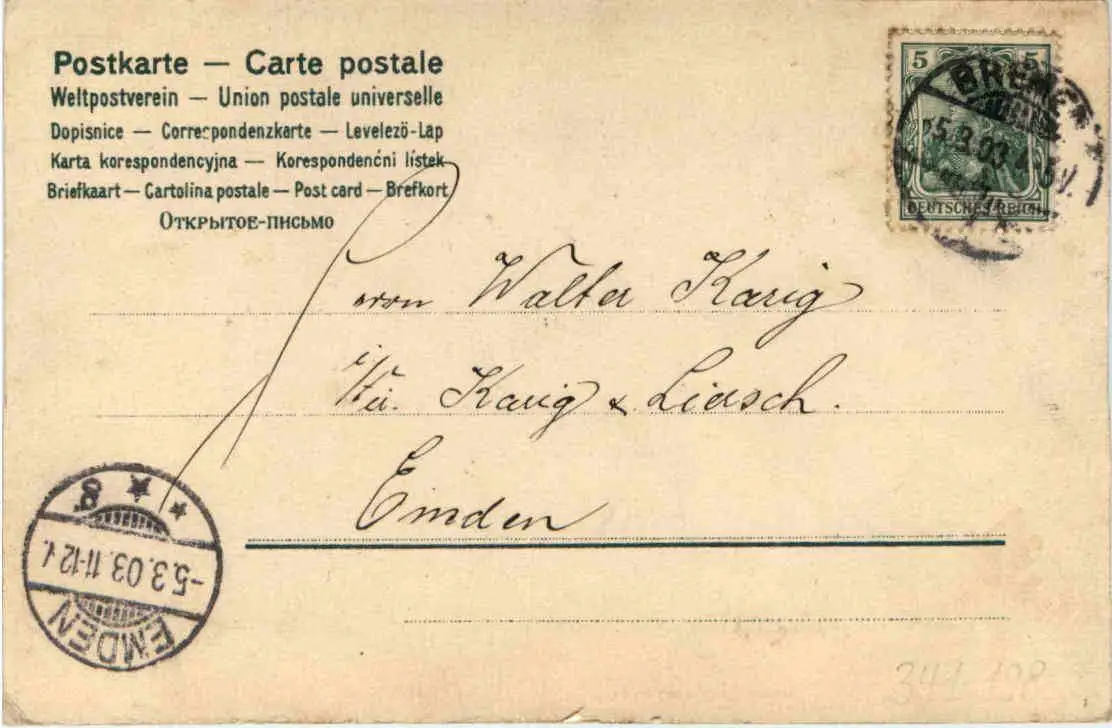 Postkarte — Carte postale
Weltpostverein — Union postale universelle
Dopisnice — Correspondenzkarte — Levelező-Lap
Karta korespondencyjna — Korespondenćni lístek
Briefkaart — Cartolina postale — Post card — Brefkort
Открытое-письмо
5 5
BREMEN
5.3.03
DEUTSCHES REICH
Herrn Walter Karig
i/Fa. Karig & Liersch.
Emden
EMDEN
-5.3.03.11-12V.
* * 8.